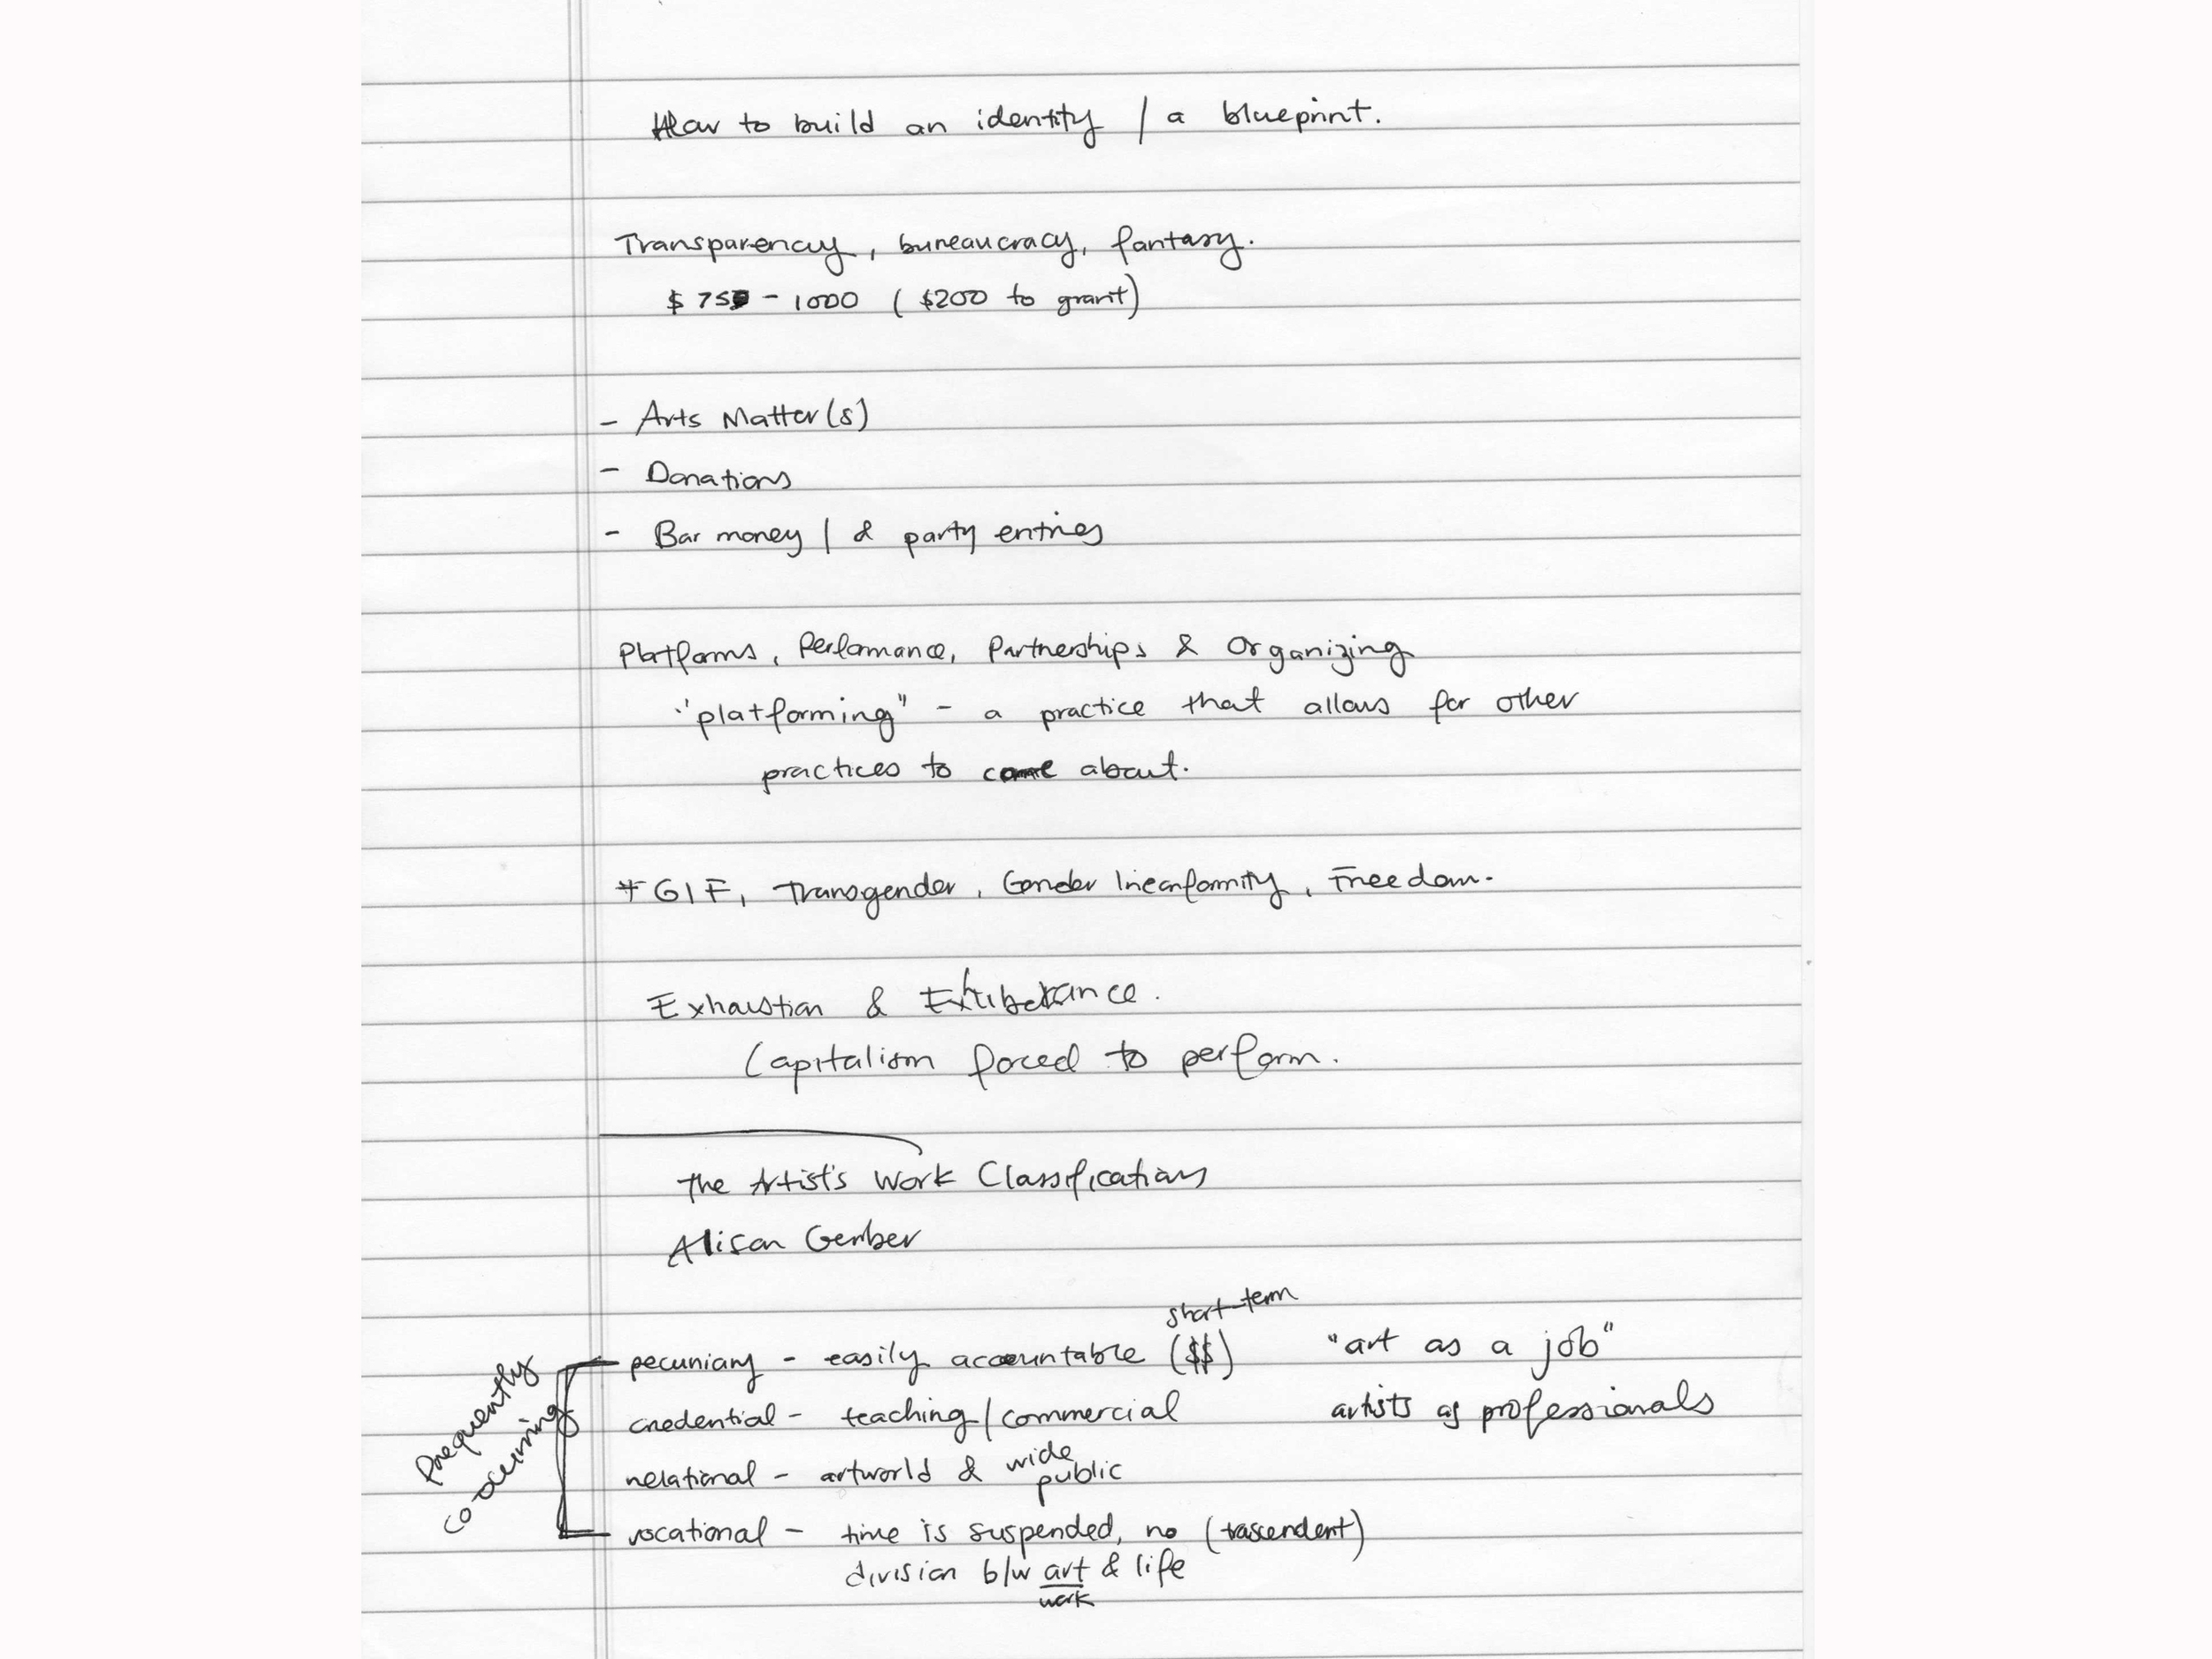 How to build an identity / a blueprint.
Transparency, bureaucracy, fantasy.
$ 750 - 1000 ( $200 to grant)
- Arts Matter(s)
- Donations
- Bar money | & party entries
Platforms, Performance, Partnerships & Organizing
"platforming" - a practice that allows for other
practices to come about.
GIF, Transgender, Gender Inconformity, Freedom.
Exhaustion & Exhuberance.
Capitalism forced to perform.
The Artist's Work Classifications
Alison Gerber
short-term
pecuniary - easily accountable ($$) "art as a job"
credential - teaching/commercial artists as professionals
relational - artworld & wide
public
vocational - time is suspended, no (trascendent)
division b/w art & life
work
frequently
co-occurring